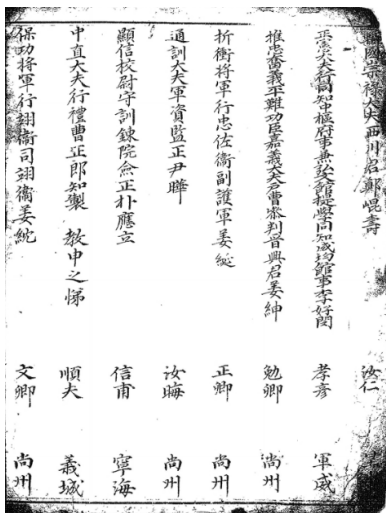 國崇祿大夫西川君鄭崐壽 汝仁
正憲大夫行同知中樞府事兼弘文館提學同知成均館事李好閔 孝彥 軍威
推忠奮義平難功臣嘉義大夫戶曹參判晉興君姜紳 勉卿 尙州
折衝將軍行忠佐衛副護軍姜綖 正卿 尙州
通訓大夫軍資監正尹曄 汝晦 尙州
顯信校尉守訓鍊院僉正朴應立 信甫 寧海
中直大夫行禮曹正郎知製 教申之悌 順夫 義城
保功將軍行翊衛司翊衛姜紞 文卿 尙州